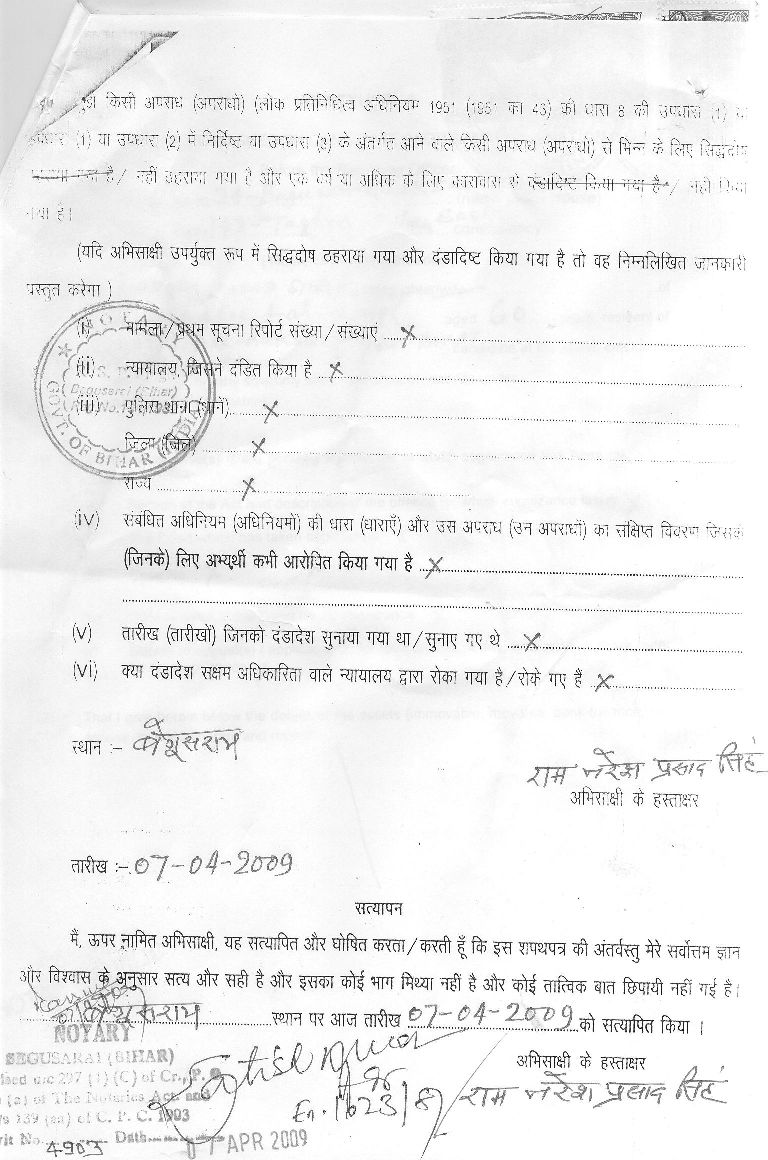 किसी अपराध (अपराधों) (लोक प्रतिनिधित्व अधिनियम 1951 (1951 का 43) की धारा 8 की उपधारा (1) या
(1) या उपधारा (2) में निर्दिष्ट या उपधारा (3) के अंतर्गत आने वाले किसी अपराध (अपराधों) से भिन्न के लिए सिद्धदोष
गया है / नहीं ठहराया गया है और एक वर्ष या अधिक के लिए कारावास से दंडादिष्ट किया गया है / नहीं किया
गया है।
(यदि अभिसाक्षी उपर्युक्त रूप में सिद्धदोष ठहराया गया और दंडादिष्ट किया गया है तो वह निम्नलिखित जानकारी
प्रस्तुत करेगा)
(i) मामला/प्रथम सूचना रिपोर्ट संख्या/संख्याएं X
(ii) न्यायालय, जिसने दंडित किया है X
(iii) पुलिस थाना (थाने) X
जिला (जिले) X
राज्य X
NOTARY
Begusarai (Bihar)
GOVT. OF BIHAR (INDIA)
(iv) संबंधित अधिनियम (अधिनियमों) की धारा (धाराएँ) और उस अपराध (उन अपराधों) का संक्षिप्त विवरण जिसके
(जिनके) लिए अभ्यर्थी कभी आरोपित किया गया है X
(v) तारीख (तारीखों) जिनको दंडादेश सुनाया गया था/सुनाए गए थे X
(vi) क्या दंडादेश सक्षम अधिकारिता वाले न्यायालय द्वारा रोका गया है/रोके गए हैं X
स्थान :- बेगूसराय
राम नरेश प्रसाद सिंह
अभिसाक्षी के हस्ताक्षर
तारीख :- 07-04-2009
सत्यापन
मैं, ऊपर नामित अभिसाक्षी, यह सत्यापित और घोषित करता/करती हूँ कि इस शपथपत्र की अंतर्वस्तु मेरे सर्वोत्तम ज्ञान
और विश्वास के अनुसार सत्य और सही है और इसका कोई भाग मिथ्या नहीं है और कोई तात्विक बात छिपायी नहीं गई है।
बेगूसराय स्थान पर आज तारीख 07-04-2009 को सत्यापित किया ।
NOTARY
BEGUSARAI (BIHAR)
u/c 297 (1) (C) of Cr. P. C.
(a) of The Notaries Act. and
139 (aa) of C. P. C. 1903
No. 4903 Date 07 APR 2009
En. 1623/8
अभिसाक्षी के हस्ताक्षर
राम नरेश प्रसाद सिंह